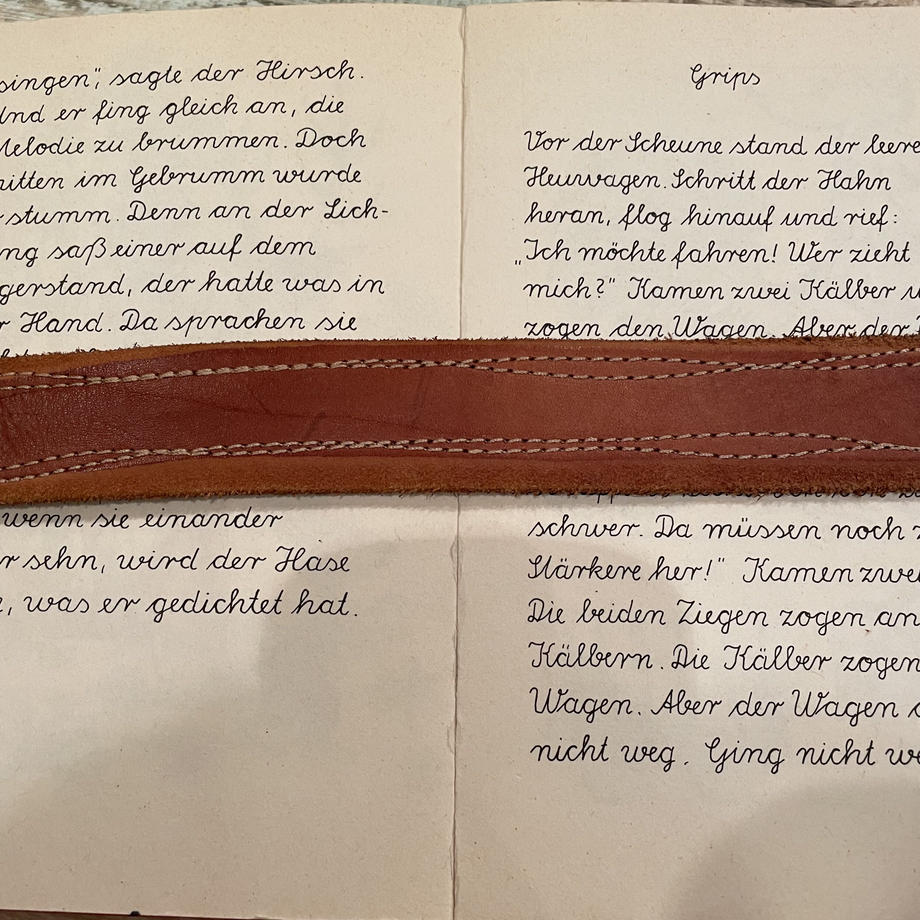 singen", sagte der Hirsch.
Und er fing gleich an, die
Melodie zu brummen. Doch
mitten im Gebrumm wurde
stumm. Denn an der Lich-
ng saß einer auf dem
gerstand, der hatte was in
r Hand. Da sprachen sie
wenn sie einander
r sehn, wird der Hase
, was er gedichtet hat.
Grips
Vor der Scheune stand der leere
Heuwagen. Schritt der Hahn
heran, flog hinauf und rief:
„Ich möchte fahren! Wer zieht
mich?" Kamen zwei Kälber u
zogen den Wagen. Aber der
schwer. Da müssen noch z
Stärkere her!" Kamen zwei
Die beiden Ziegen zogen an
Kälbern. Die Kälber zogen
Wagen. Aber der Wagen
nicht weg. Ging nicht we